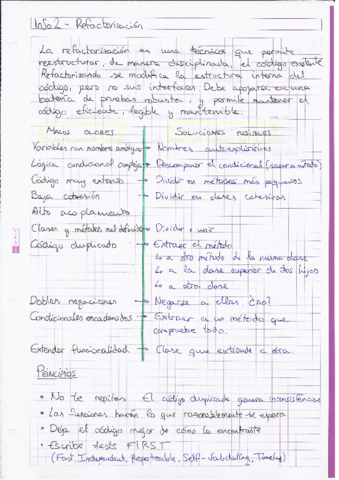 Info 2 - Refactorización
La refactorización es una técnica que permite
reestructurar, de manera disciplinada, el código existente.
Refactorizando se modifica la estructura interna del
código, pero no sus interfaces. Debe apoyarse en una
batería de pruebas robusta, y permite mantener el
código eficiente, legible y mantenible.
MALOS OLORES SOLUCIONES POSIBLES
Variables con nombre ambiguo → Nombres autoexplicativos
Lógica condicional compleja → Descomponer el condicional (sacar a método)
Código muy extenso → Dividir en métodos más pequeños
Baja cohesión → Dividir en clases cohesivas
Alto acoplamiento
Clases y métodos mal definidos → Dividir o unir
Código duplicado → Extraer el método
↳ a otro método de la misma clase
↳ a la clase superior de dos hijos
↳ a otra clase
Dobles negaciones → Negarse a ellas ¿no?
Condicionales encadenados → Extraer a un método que
compruebe todo.
Extender funcionalidad → Clase que extiende a otra.
PRINCIPIOS
• No te repitas El código duplicado genera inconsistencias
• Las funciones harán lo que razonablemente se espera
• Deja el código mejor de cómo lo encontraste
• Escribe tests FIRST
(Fast, Independent, Repeatable, Self-Validating, Timely)